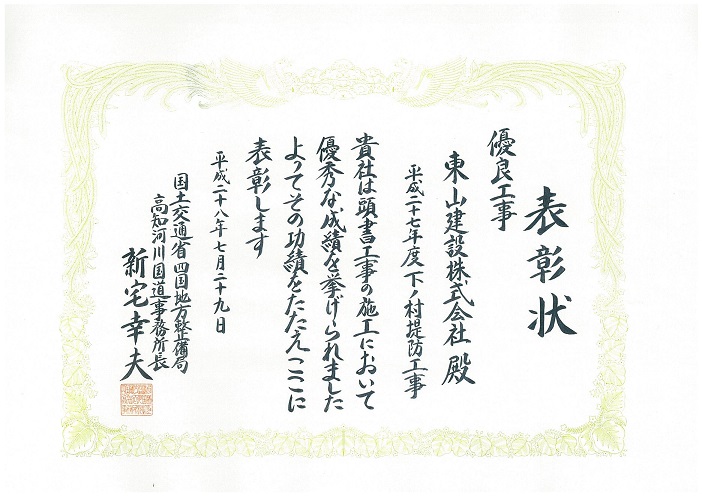 表彰状
優良工事
東山建設株式会社 殿
平成二十七年度下ノ村堤防工事
貴社は頭書工事の施工において
優秀な成績を挙げられました
よってその功績をたたえここに
表彰します
平成二十八年七月二十九日
国土交通省四国地方整備局
高知河川国道事務所長
新宅幸夫